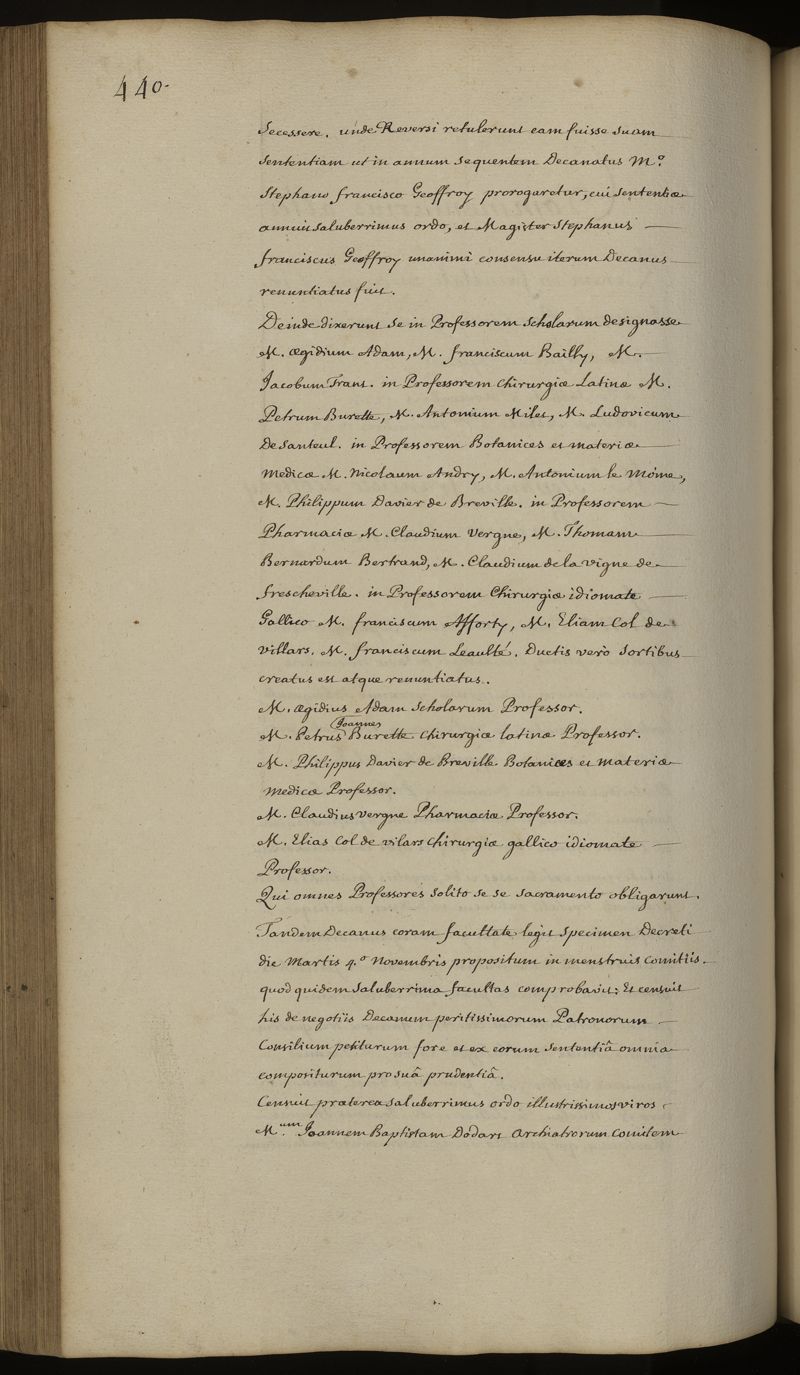 440.
Secessere. unde Reversi retulerunt eam fuisse suam
sententiam ut in annum sequentem Decanatus M.o
Stephano francisco Geoffroy prorogaretur, cui sententiæ
annuit saluberrimus ordo, et Magister Stephanus
franciscus Geoffroy unanimi consensu iterum Decanus
renuntiatus fuit.
Deinde dixerunt se in Professorem Scholarum designasse
M. ægidium Adam, M. franciscum Bailly, M.
Jacobum Trant. in Professorem chirurgiæ Latinæ M.
Petrum Burette, M. Antonium Milet, M. Ludovicum
De Santeul. in Professorem Botanices et materiæ
medicæ M. Nicolaum Andry, M. Antonium le Moine,
M. Philippum Davier de Breville. in Professorem
Pharmaciæ M. Claudium Vergne, M. Thomam
Bernardum Bertrand, M. Claudium de la vigne de
frescheville. in Professorem Chirurgiæ idiomate
Gallico M. franciscum Afforty, M. Eliam Col de
Villars. M. franciscum Leaulté. Ductis verò Sortibus
creatus est atque renuntiatus.
M. ægidius Adam Scholarum Professor.
Joannes
M. Petrus Burette chirurgiæ latinæ Professor.
M. Philippus Davier de Breville. Botanices et materiæ
medicæ Professor.
M. Claudius vergne Pharmaciæ Professor.
M. Elias Col de vilars chirurgiæ gallico idiomate
Professor.
Qui omnes Professores solito se se sacramento obligarunt.
Tandem Decanus coram facultate legit specimen Decreti
die Martis 4.o Novembris propositum in menstruis comitiis.
quod quidem saluberrima facultas comprobavit: Et censuit
his de negotiis Decanum peritissimorum Patronorum
Consilium petiturum fore et ex eorum sententiâ omnia
compositurum pro suâ prudentiâ.
Censuit præterea saluberrimus ordo illustrissimos viros
M.um Joannem Baptistam Dodart Archiatrorum comitem